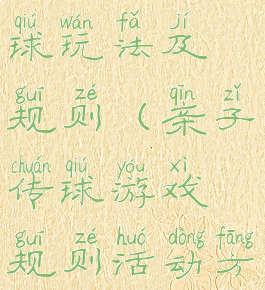 qiú wán fǎ jí
球玩法及
guī zé qīn zǐ
规则（亲子
chuán qiú yóu xì
传球游戏
guī zé huó dòng fāng
规则活动方